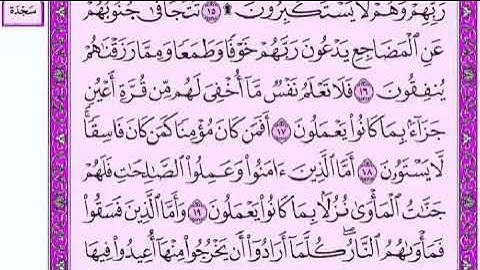 سَجْدَة
رَبِّهِمْ وَهُمْ لَا يَسْتَكْبِرُونَ ۩ ١٥ تَتَجَافَىٰ جُنُوبُهُمْ
عَنِ ٱلْمَضَاجِعِ يَدْعُونَ رَبَّهُمْ خَوْفًا وَطَمَعًا وَمِمَّا رَزَقْنَٰهُمْ
يُنفِقُونَ ١٦ فَلَا تَعْلَمُ نَفْسٌ مَّآ أُخْفِىَ لَهُم مِّن قُرَّةِ أَعْيُنٍ
جَزَآءًۢ بِمَا كَانُوا۟ يَعْمَلُونَ ١٧ أَفَمَن كَانَ مُؤْمِنًا كَمَن كَانَ فَاسِقًا ۚ
لَّا يَسْتَوُۥنَ ١٨ أَمَّا ٱلَّذِينَ ءَامَنُوا۟ وَعَمِلُوا۟ ٱلصَّٰلِحَٰتِ فَلَهُمْ
جَنَّٰتُ ٱلْمَأْوَىٰ نُزُلًۢا بِمَا كَانُوا۟ يَعْمَلُونَ ١٩ وَأَمَّا ٱلَّذِينَ فَسَقُوا۟
فَمَأْوَىٰهُمُ ٱلنَّارُ ۖ كُلَّمَآ أَرَادُوٓا۟ أَن يَخْرُجُوا۟ مِنْهَآ أُعِيدُوا۟ فِيهَا